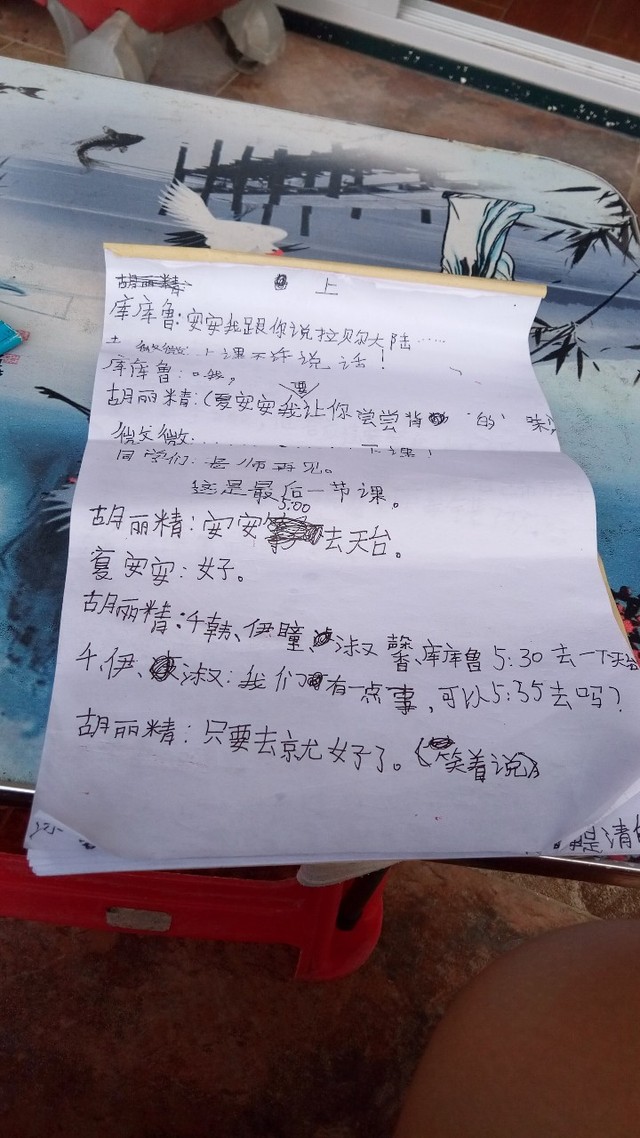 胡丽精 上
库库鲁:安安我跟你说拉贝尔大陆……
微微:上课不许说话!
库库鲁:哦,
胡丽精:(夏安安我要让你尝尝背 的
微微 下课!
同学们:老师再见。
这是最后一节课。
胡丽精:安安5:00去天台。
夏安安:好。
胡丽精:千韩、伊瞳、淑馨、库库鲁5:30去一下天台
千、伊、淑:我们有一点事,可以5:35去吗?
胡丽精:只要去就好了。(笑着说)